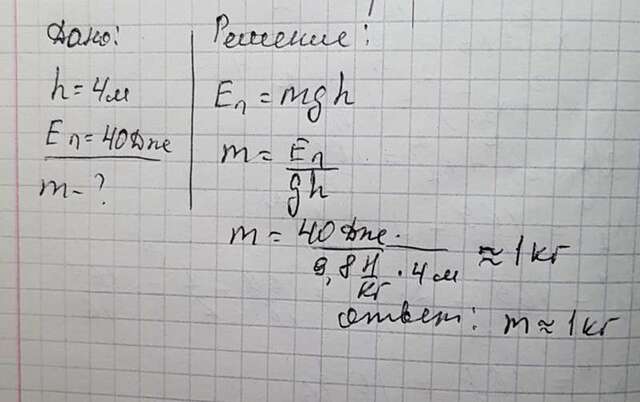 Дано:
h = 4м
Eп = 40Дж
m - ?
Решение:
Eп = mgh
m = Eп / gh
m = 40 Дж / 9,8 Н/кг · 4 м ≈ 1 кг
Ответ: m ≈ 1 кг